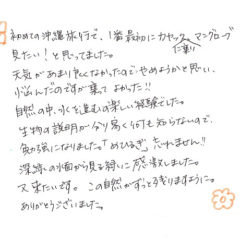 初めての沖縄旅行で、1番最初にカヤックに乗り、マングローブ
見たい！と思ってました。
天気があまり良くなかったので、やめようかと思い、
悩んだのですが乗ってよかった!!
自然の中、水を進むの楽しい経験でした。
生物の説明が分り易く何も知らないので、
勉強になりました。「めひるぎ」忘れません!!
深緑の水面から見る緑に感激しました。
又来たいです。この自然がずっとつづきますように。
ありがとうございました。